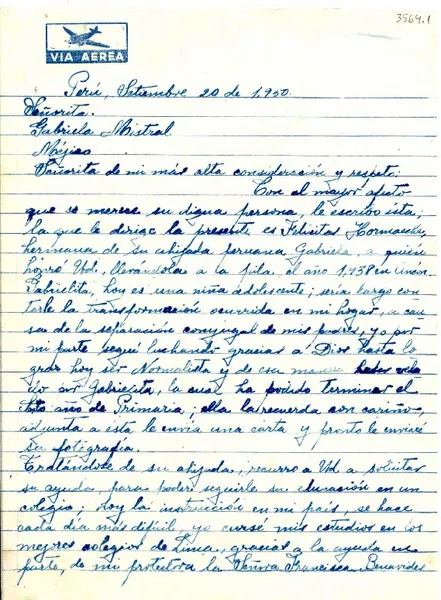 3564.1
VIA AEREA
Perú, Setiembre 20 de 1.950.
Señorita.
Gabriela Mistral.
Méjico
Señorita de mi más alta consideración y respeto:
Con el mayor afecto
que se merece su digna persona, le escribo ésta;
la que le dirige la presente es Felicitas
hermana de su ahijada peruana Gabriela, a quién
honró Ud. llevándola a la pila, el año 1.938 en
Gabrielita, hoy es una niña adolescente; sería largo con-
tarle la transformación ocurrida en mi hogar, a cau-
sa de la separación conyugal de mis padres, yo por
mi parte seguí luchando gracias a Dios hasta lo
grar hoy ser Normalista y de esa manera haber
do por Gabrielita, la cual ha podido terminar el
5to año de Primaria; ella la recuerda con cariño,
adjunta a ésta le envía una carta y pronto le enviaré
su fotografía.
Tratándose de su ahijada, recurro a Ud a solicitar
su ayuda para poder seguirle su educación en un
colegio; hoy la instrucción en mi país, se hace
cada día más difícil, yo cursé mis estudios en los
mejores colegios de Lima, gracias a la ayuda en
parte, de mi protectora la Señora Francisca Benavides